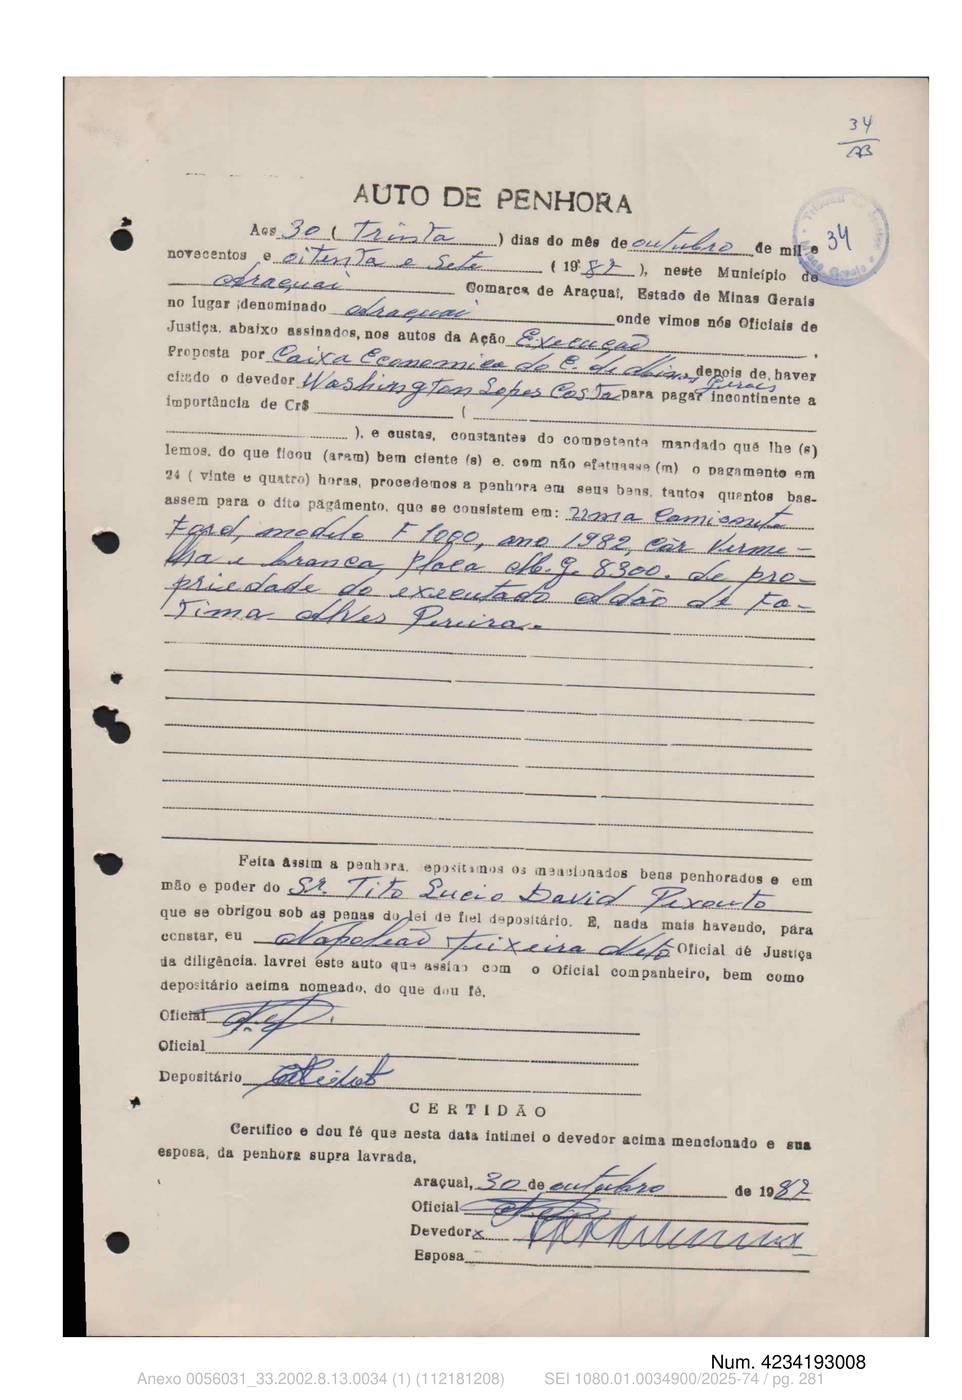 34
AB
AUTO DE PENHORA
34
Aos 30 ( Trinta ) dias do mês de outubro de mil e
novecentos e oitenta e sete ( 1987 ), neste Município de
Araçuaí Comarca de Araçuaí, Estado de Minas Gerais
no lugar denominado Araçuaí onde vimos nós Oficiais de
Justiça, abaixo assinados, nos autos da Ação Execução ,
Proposta por Caixa Economica do E. de Minas Gerais depois de haver
citado o devedor Washington Lopes Costa para pagar incontinente a
importância de Cr$ (
), e custas, constantes do competente mandado que lhe (s)
lemos, do que ficou (aram) bem ciente (s) e, com não efetuasse (m) o pagamento em
24 ( vinte e quatro) horas, procedemos a penhora em seus bens, tantos quantos bas-
assem para o dito págâmento, que se consistem em: Uma Camioneta
Ford, modelo F 1000, ano 1982, côr verme-
lha e branca, placa M.G. 8300. de pro-
priedade do executado Adão de Fa-
tima Alves Pereira.
Feita assim a penhora, epositamos os mencionados bens penhorados e em
mão e poder do Sr. Tito Lucio David Pexouto
que se obrigou sob as penas do lei de fiel depositário. E, nada mais havendo, pára
constar, eu Napoleão Teixeira Neto Oficial dé Justiça
da diligência, lavrei este auto que assino com o Oficial companheiro, bem como
depositário acima nomeado, do que dou fé.
Oficial
Oficial
Depositário
CERTIDÃO
Certifico e dou fé que nesta data intimei o devedor acima mencionado e sua
esposa, da penhora supra lavrada,
Araçuaí, 30 de outubro de 1987
Oficial
Devedor x
Esposa
Num. 4234193008
Anexo 0056031_33.2002.8.13.0034 (1) (112181208) SEI 1080.01.0034900/2025-74 / pg. 281